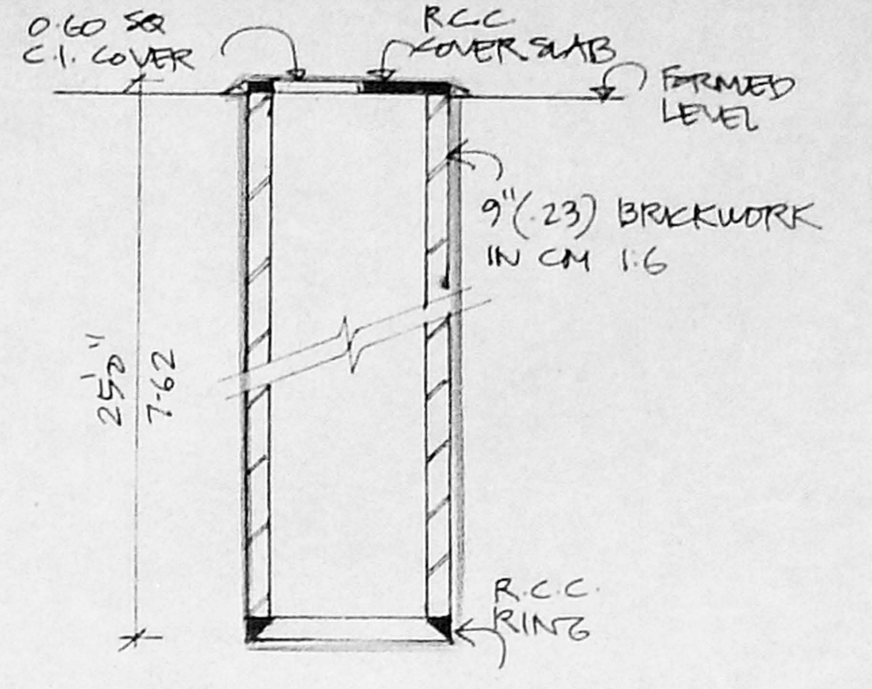 0.60 SQ
C.I. COVER
R.C.C.
COVER SLAB
FORMED
LEVEL
9"(.23) BRICKWORK
IN CM 1:6
25'0"
7.62
R.C.C.
RING